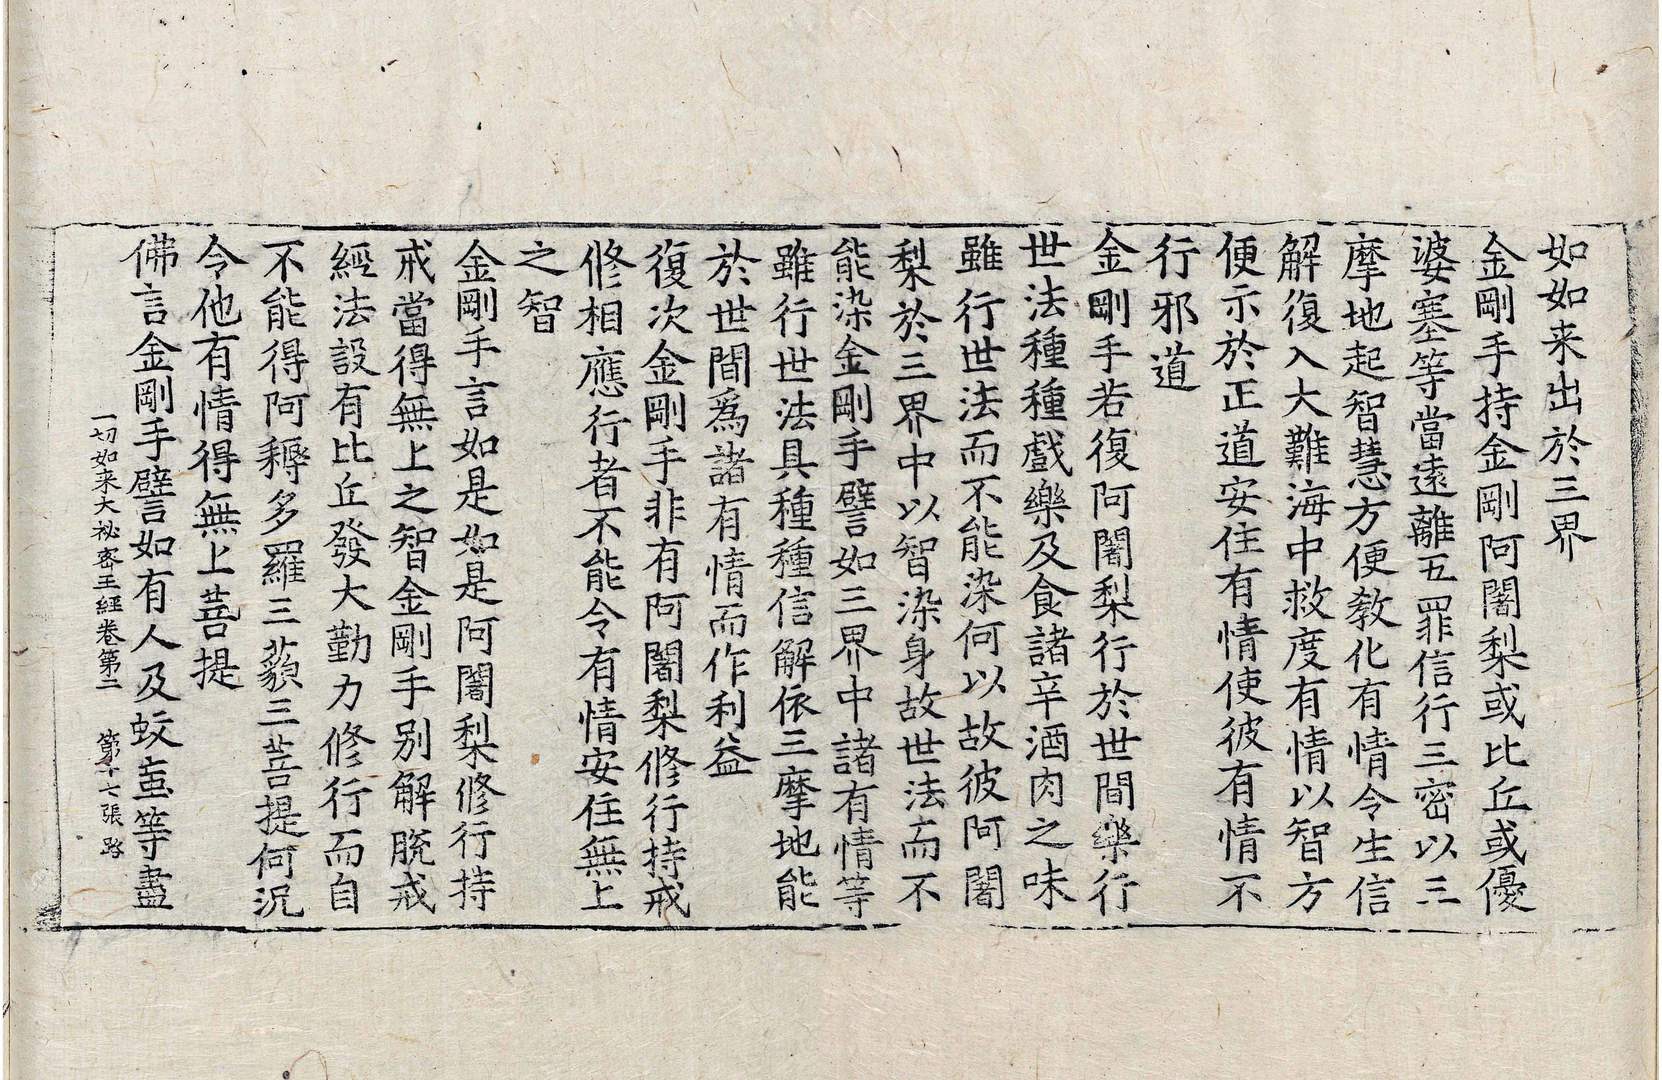 如如来出於三界
金剛手持金剛阿闍梨或比丘或優
婆塞等當遠離五罪信行三密以三
摩地起智慧方便教化有情令生信
解復入大難海中救度有情以智方
便示於正道安住有情使彼有情不
行邪道
金剛手若復阿闍梨行於世間樂行
世法種種戲樂及食諸辛酒肉之味
雖行世法而不能染何以故彼阿闍
梨於三界中以智染身故世法而不
能染金剛手譬如三界中諸有情等
雖行世法具種種信解依三摩地能
於世間為諸有情而作利益
復次金剛手非有阿闍梨修行持戒
修相應行者不能令有情安住無上
之智
金剛手言如是如是阿闍梨修行持
戒當得無上之智金剛手別解脫戒
經法設有比丘發大勤力修行而自
不能得阿耨多羅三藐三菩提何況
令他有情得無上菩提
佛言金剛手譬如有人及蚊䖟等盡
一切如来大祕密王經卷第二 第十七張 路